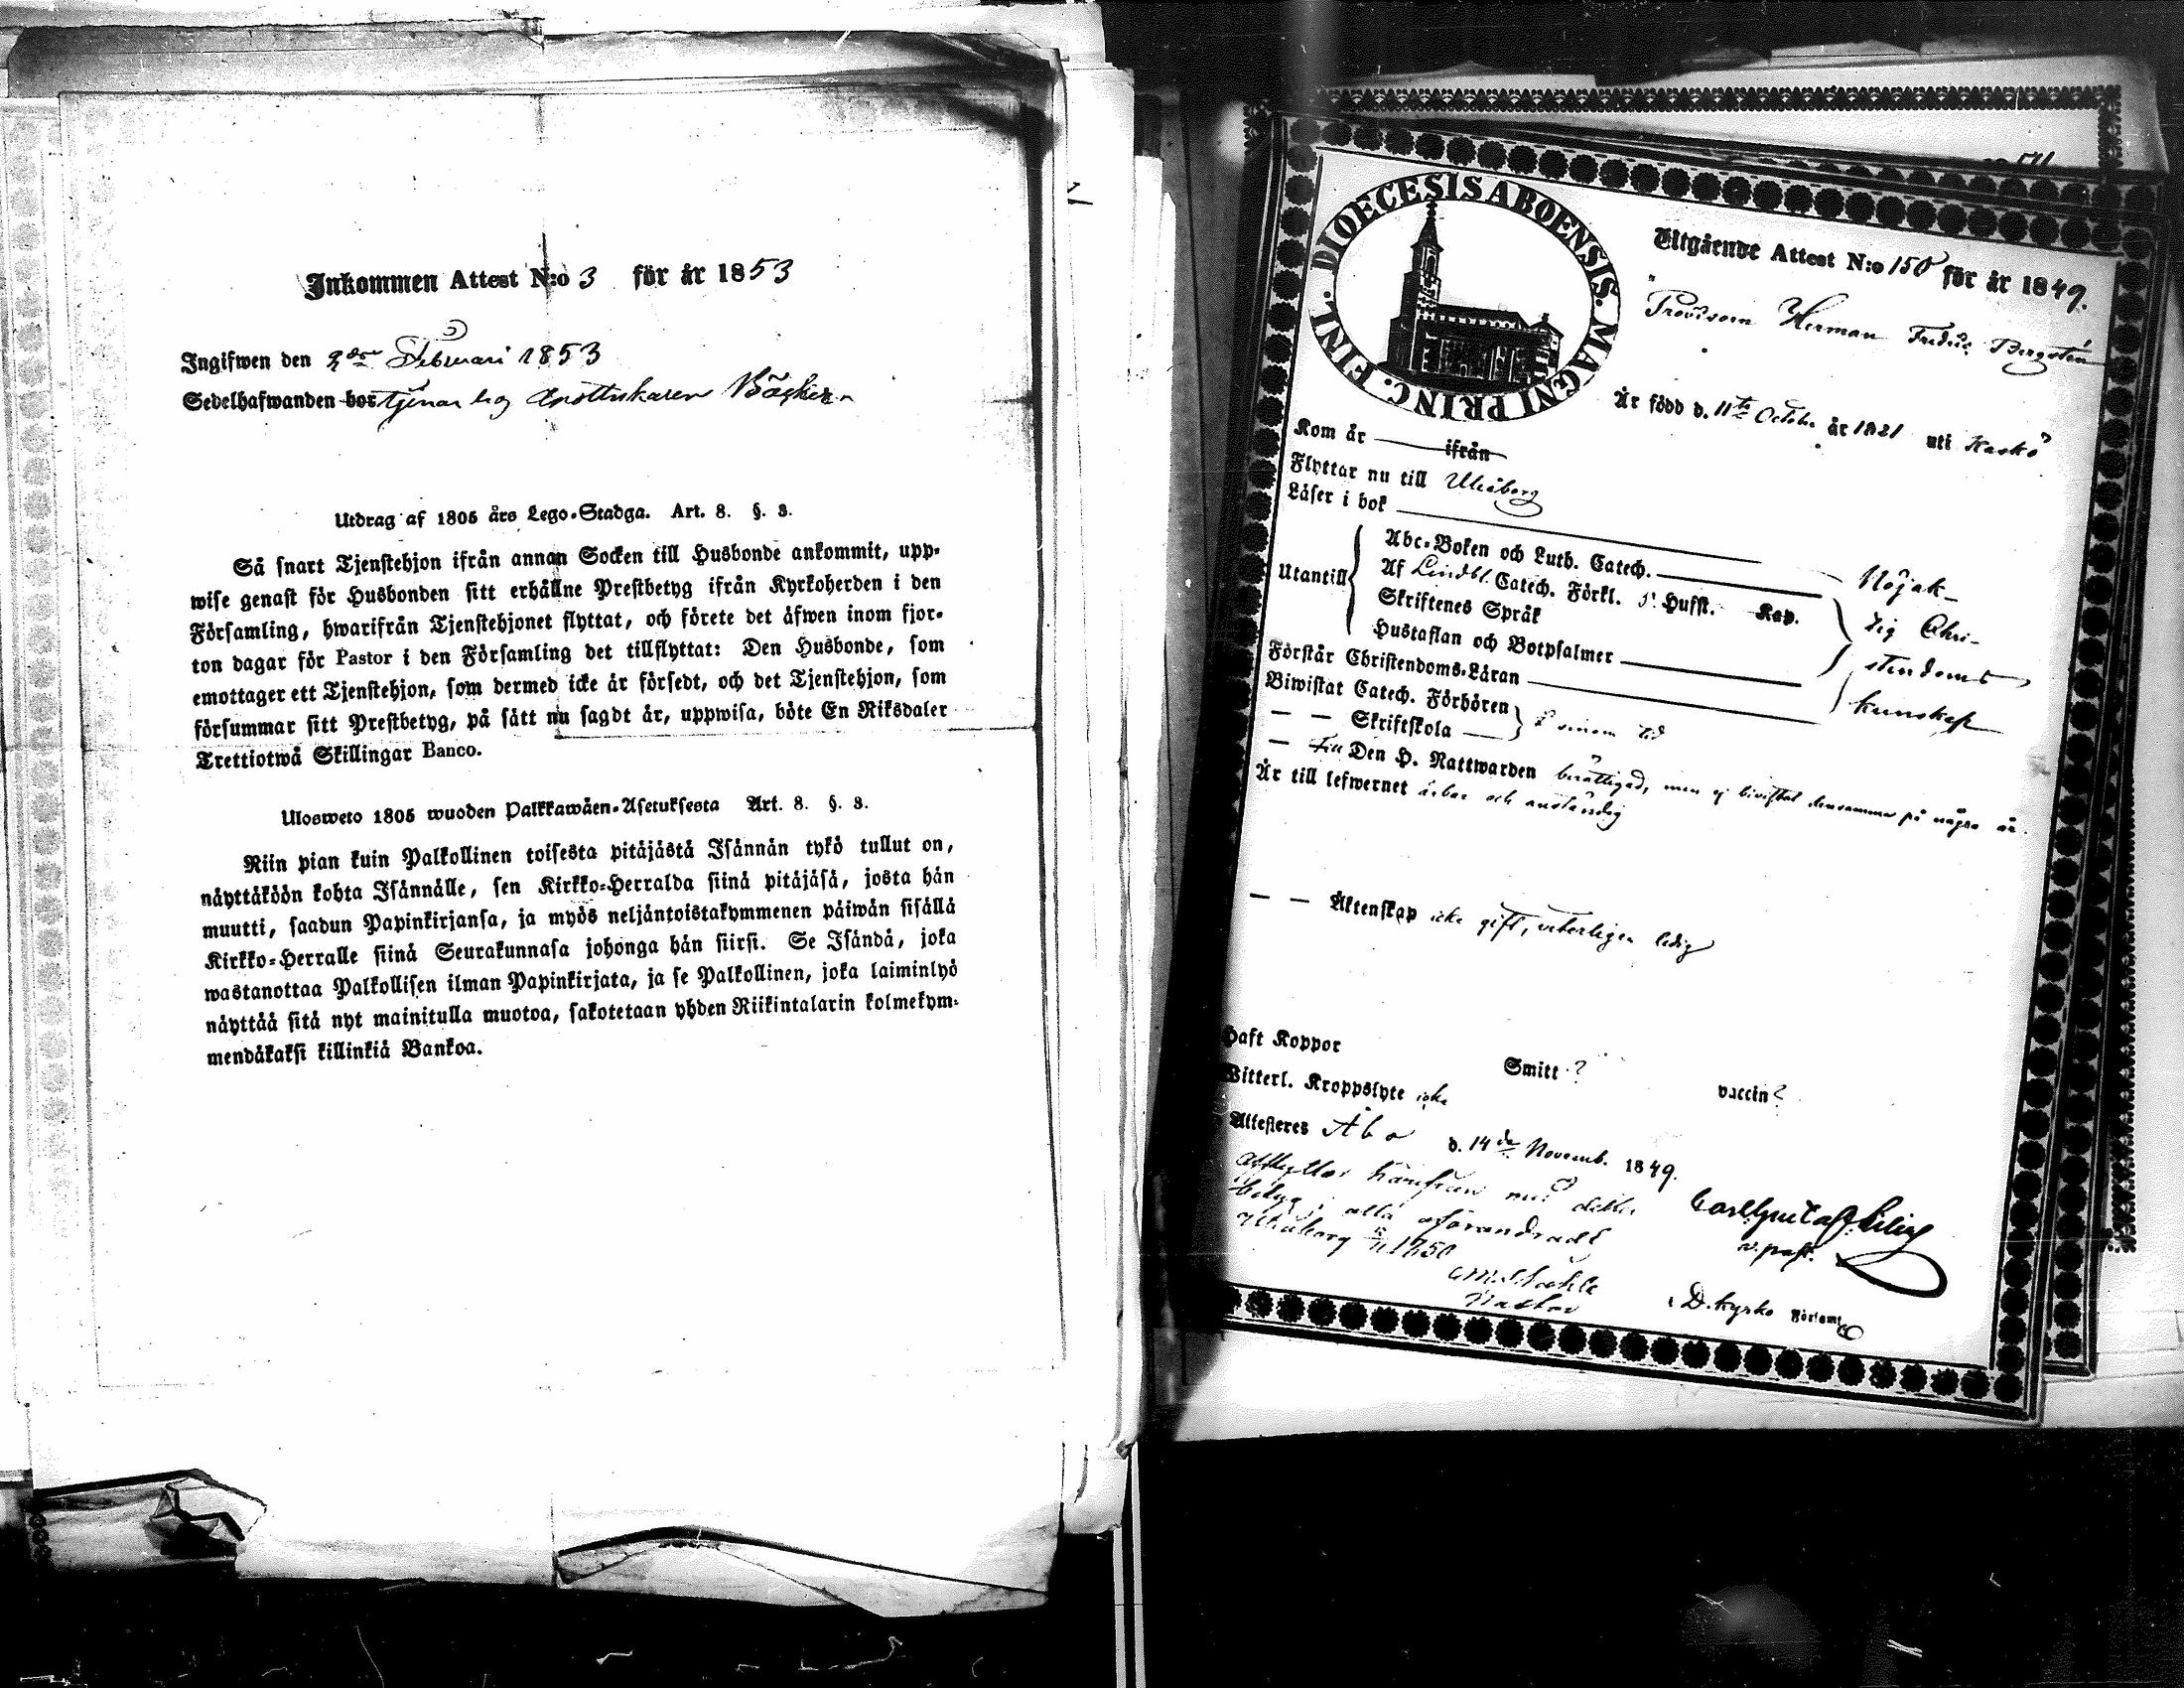 Inkommen Attest N:o 3 för år 1853
Ingifwen den 2den Februari 1853
Sedelhafwanden bor tjenar hos Apothekaren
Utdrag af 1805 års Lego-Stadga. Art. 8. §. 3.
Så snart Tjenstehjon ifrån annan Socken till Husbonde ankommit, upp-
wise genast för Husbonden sitt erhållne Prestbetyg ifrån Kyrkoherden i den
Församling, hwarifrån Tjenstehjonet flyttat, och förete det äfwen inom fjor-
ton dagar för Pastor i den Församling det tillflyttat: Den Husbonde, som
emottager ett Tjenstehjon, som dermed icke är försedt, och det Tjenstehjon, som
försummar sitt Prestbetyg, på sätt nu sagdt är, uppwisa, böte En Riksdaler
Trettiotwå Skillingar Banco.
Ulosweto 1805 wuoden Palkkawäen-Asetuksesta Art. 8. §. 3.
Niin pian kuin Palkollinen toisesta pitäjästä Isännän tykö tullut on,
näyttäköön kohta Isännälle, sen Kirkko-Herralda siinä pitäjäsä, josta hän
muutti, saadun Papinkirjansa, ja myös neljäntoistakymmenen päiwän sisällä
Kirkko-Herralle siinä Seurakunnasa johonga hän siirsi. Se Isändä, joka
wastanottaa Palkollisen ilman Papinkirjata, ja se Palkollinen, joka laiminlyö
näyttää sitä nyt mainitulla muotoa, sakotetaan yhden Riikintalarin kolmekym-
mendäkaksi killinkiä Bankoa.
DIOECESIS ABOENSIS. MAGNI PRINC. FINL.
Utgående Attest N:o 150 för år 1849.
Provisorn Herman Fredric Bergsten
Är född d. 11te Octobr år 1821 uti Kaskö
Kom år ifrån
Flyttar nu till Uleåborg
Läser i bok
Utantill
Abc-Boken och Luth. Catech.
Af Lindbl. Catech. Förkl. 5 Hufst. Kap.
Skriftenes Språk
Hustaflan och Botpsalmer
Förstår Christendoms-Läran
Nöjak-
lig Chri-
stendoms
kunskap
Biwistat Catech. Förhören
— — Skriftskola
i sinom tid
— Till Den H. Nattwarden berättigad, men ej bivistat densamma på några år.
Är till lefwernet ärbar och anständig
— — Äktenskap icke gift, veterligen ledig
Haft Koppor Smitt ? vaccin ?
Witterl. Kroppslyte icke
Attesteres Åbo d. 14de Novemb. 1849.
Afflyttar härifrån med detta
betyg i allo oförändradt
Uleåborg 1850
v. past.
Pastor
i D. kyrko Församl.